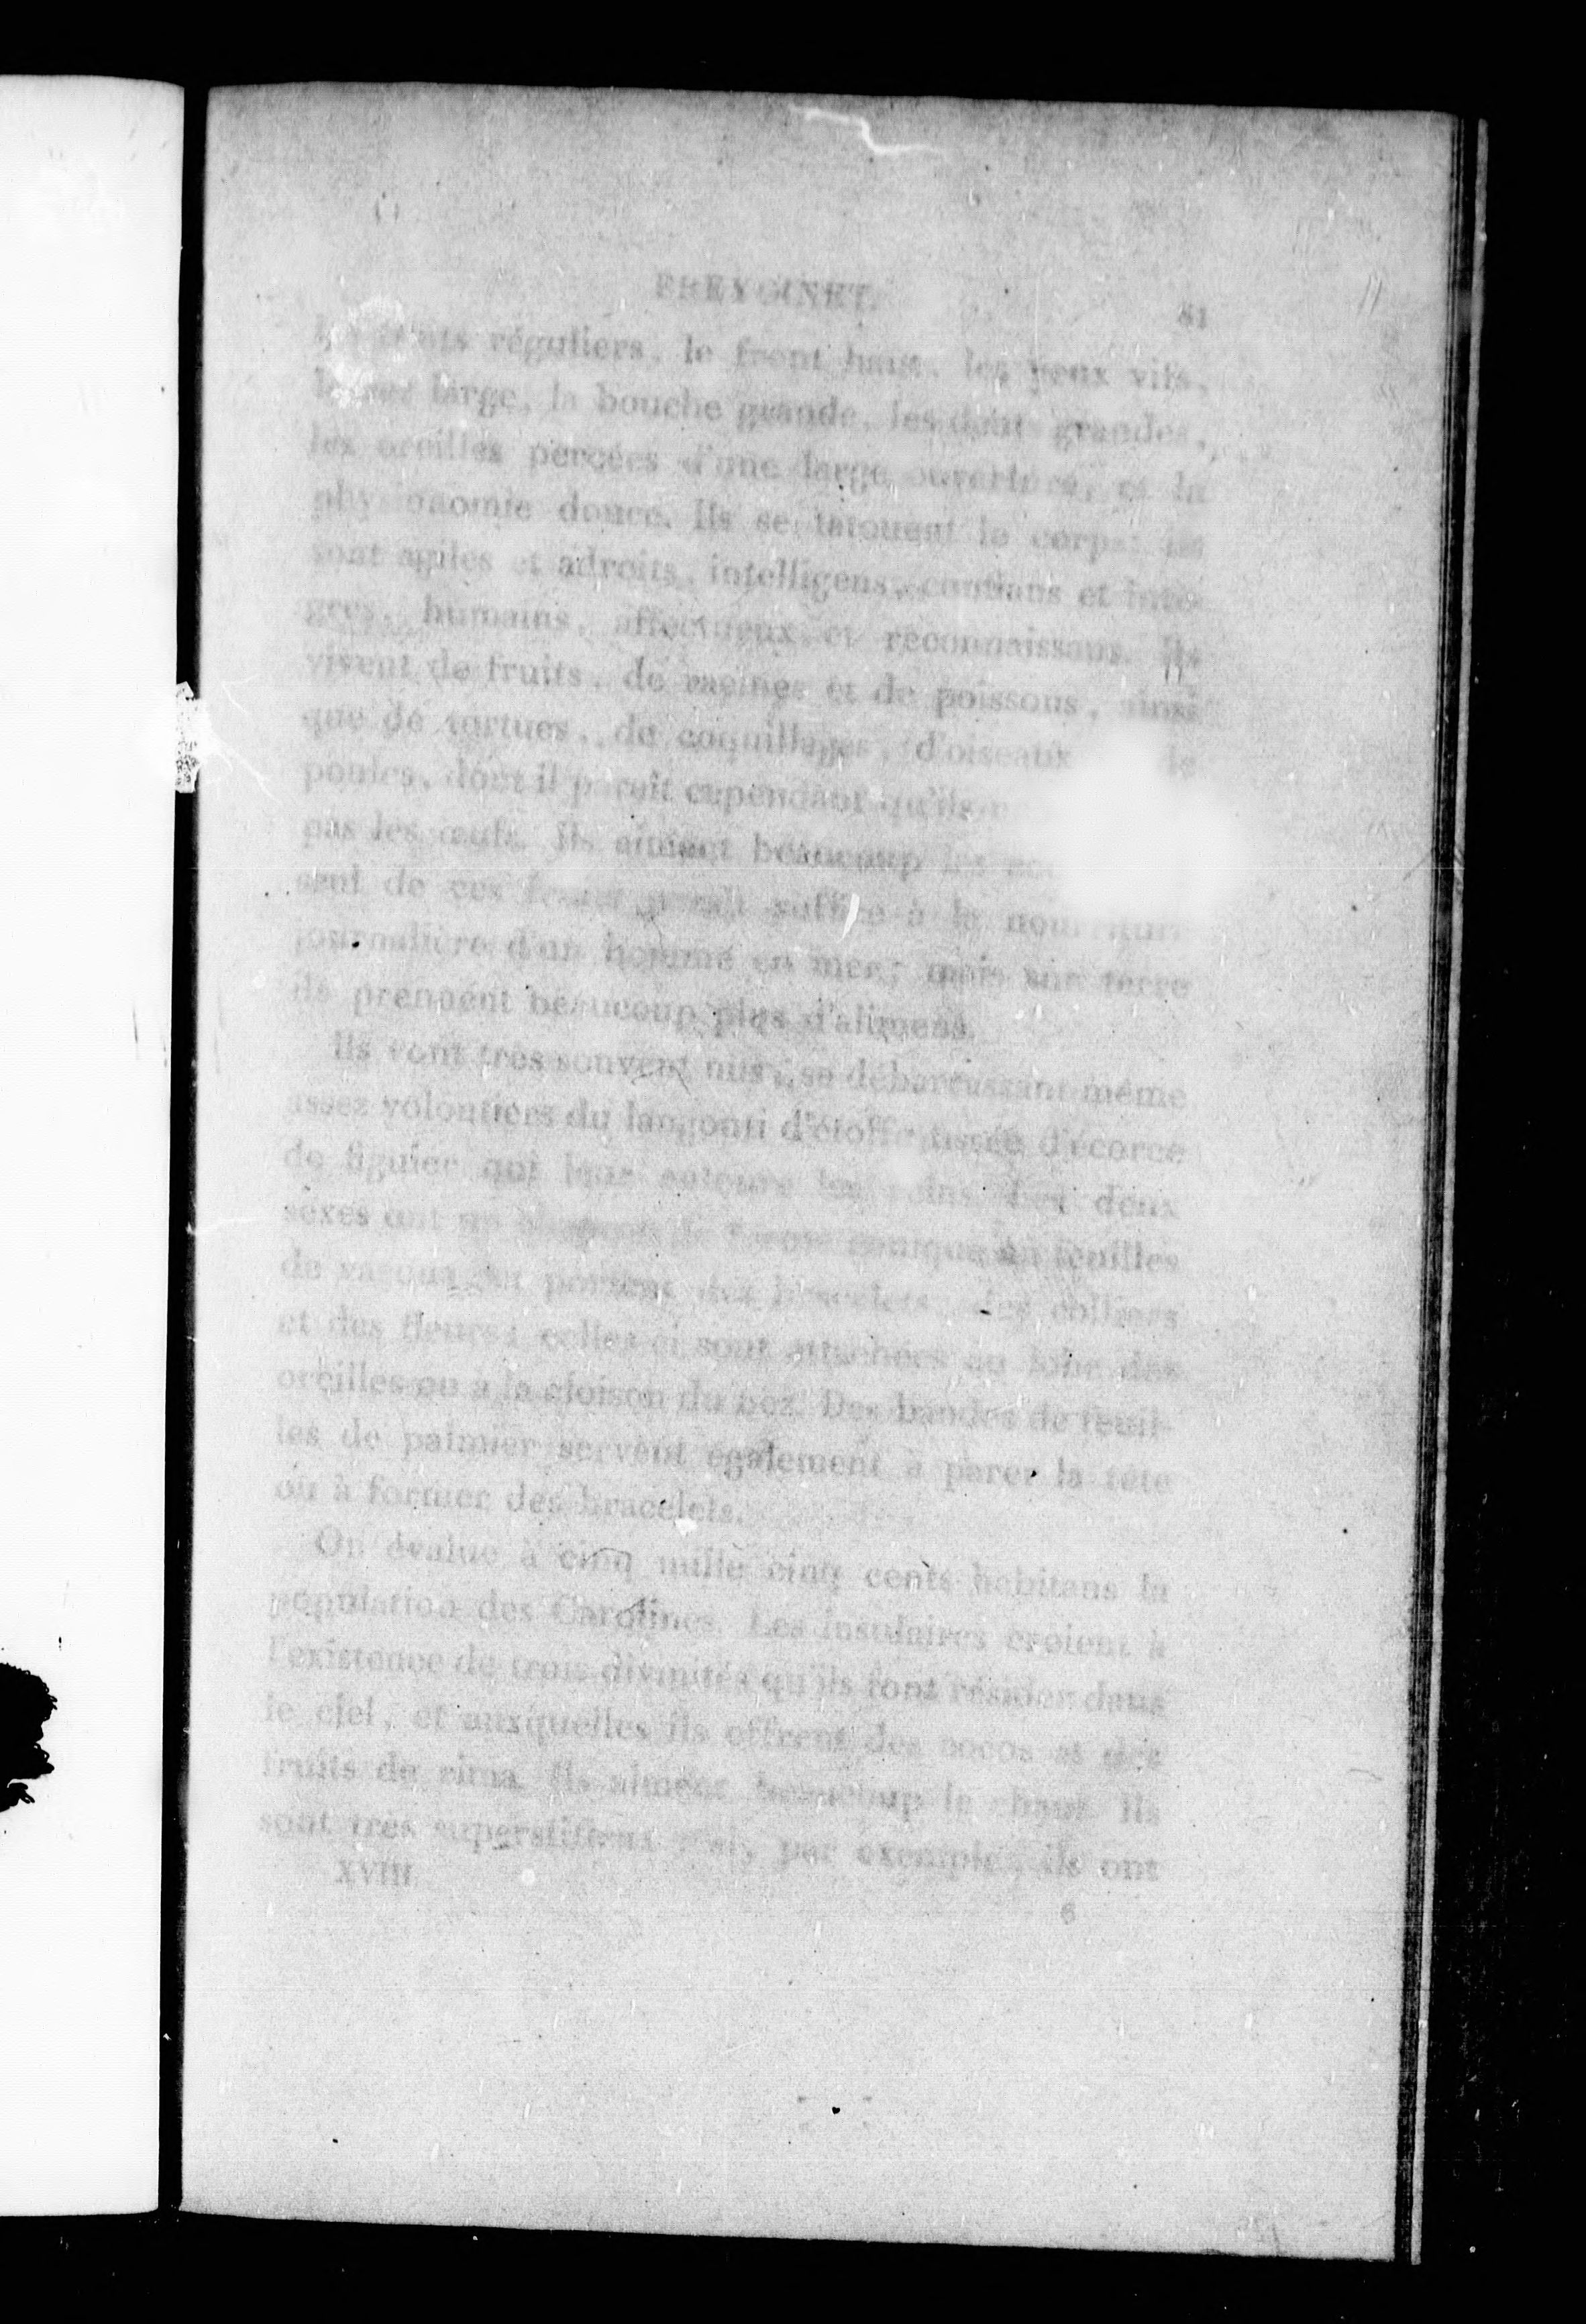 FREYCINET. 81
les traits réguliers, le front haut, les yeux vifs,
le nez large, la bouche grande, les dents grandes,
les oreilles percées d'une large ouverture, et la
physionomie douce. Ils se tatouent le corps: ils
sont agiles et adroits, intelligens, confians et intè-
gres, humains, affectueux et reconnaissans. Ils
vivent de fruits, de racines et de poissons, ainsi
que de tortues, de coquillages, d'oiseaux de
poules, dont il paraît cependant qu'ils
pas les œufs. Ils aiment beaucoup les
seul de ces paraît suffire à la nourriture
journalière d'un homme en mer; mais sur terre
ils prennent beaucoup plus d'alimens.
Ils vont très souvent nus, se débarrassant même
assez volontiers du langouti d'étoffe tissée d'écorce
de figuier qui leur entoure les reins. Les deux
sexes ont un de forme conique en feuilles
de vacoua, et portent des bracelets, des colliers
et des fleurs; celles-ci sont attachées au lobe des
oreilles ou à la cloison du nez. Des bandes de feuil-
les de palmier servent également à parer la tête
ou à former des bracelets.
On évalue à cinq mille cinq cents habitans la
population des Carolines. Les insulaires croient à
l'existence de trois divinités qu'ils font résider dans
le ciel, et auxquelles ils offrent des cocos et des
fruits de rima. Ils aiment beaucoup le chant. Ils
sont très superstitieux: si, par exemple, ils ont
XVIII 6